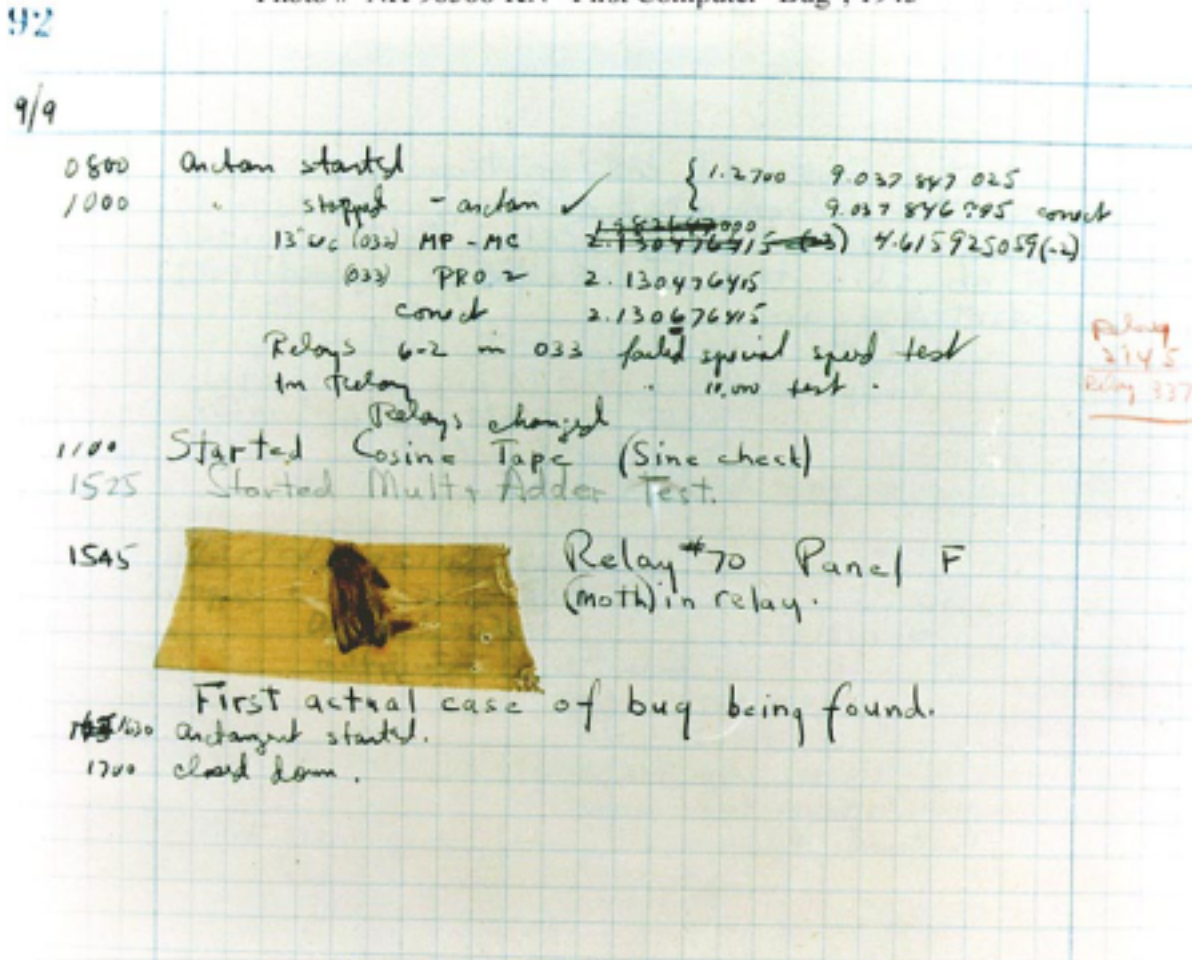 92
9/9
0800 Antan started { 1.2700 9.037 847 025
1000 " stopped - antan ✓ 9.037 846 795 conect
13"uc (032) MP - MC 2.130476415 (-3) 4.615925059(-2)
(033) PRO 2 2.130476415
conect 2.130676415
Relays 6-2 in 033 failed special speed test
in relay " 10,000 test .
Relays changed
Relay
2145
Relay 337
1100 Started Cosine Tape (Sine check)
1525 Started Mult + Adder Test.
1545 Relay #70 Panel F
(moth) in relay.
First actual case of bug being found.
1630 Antangent started.
1700 closed down.